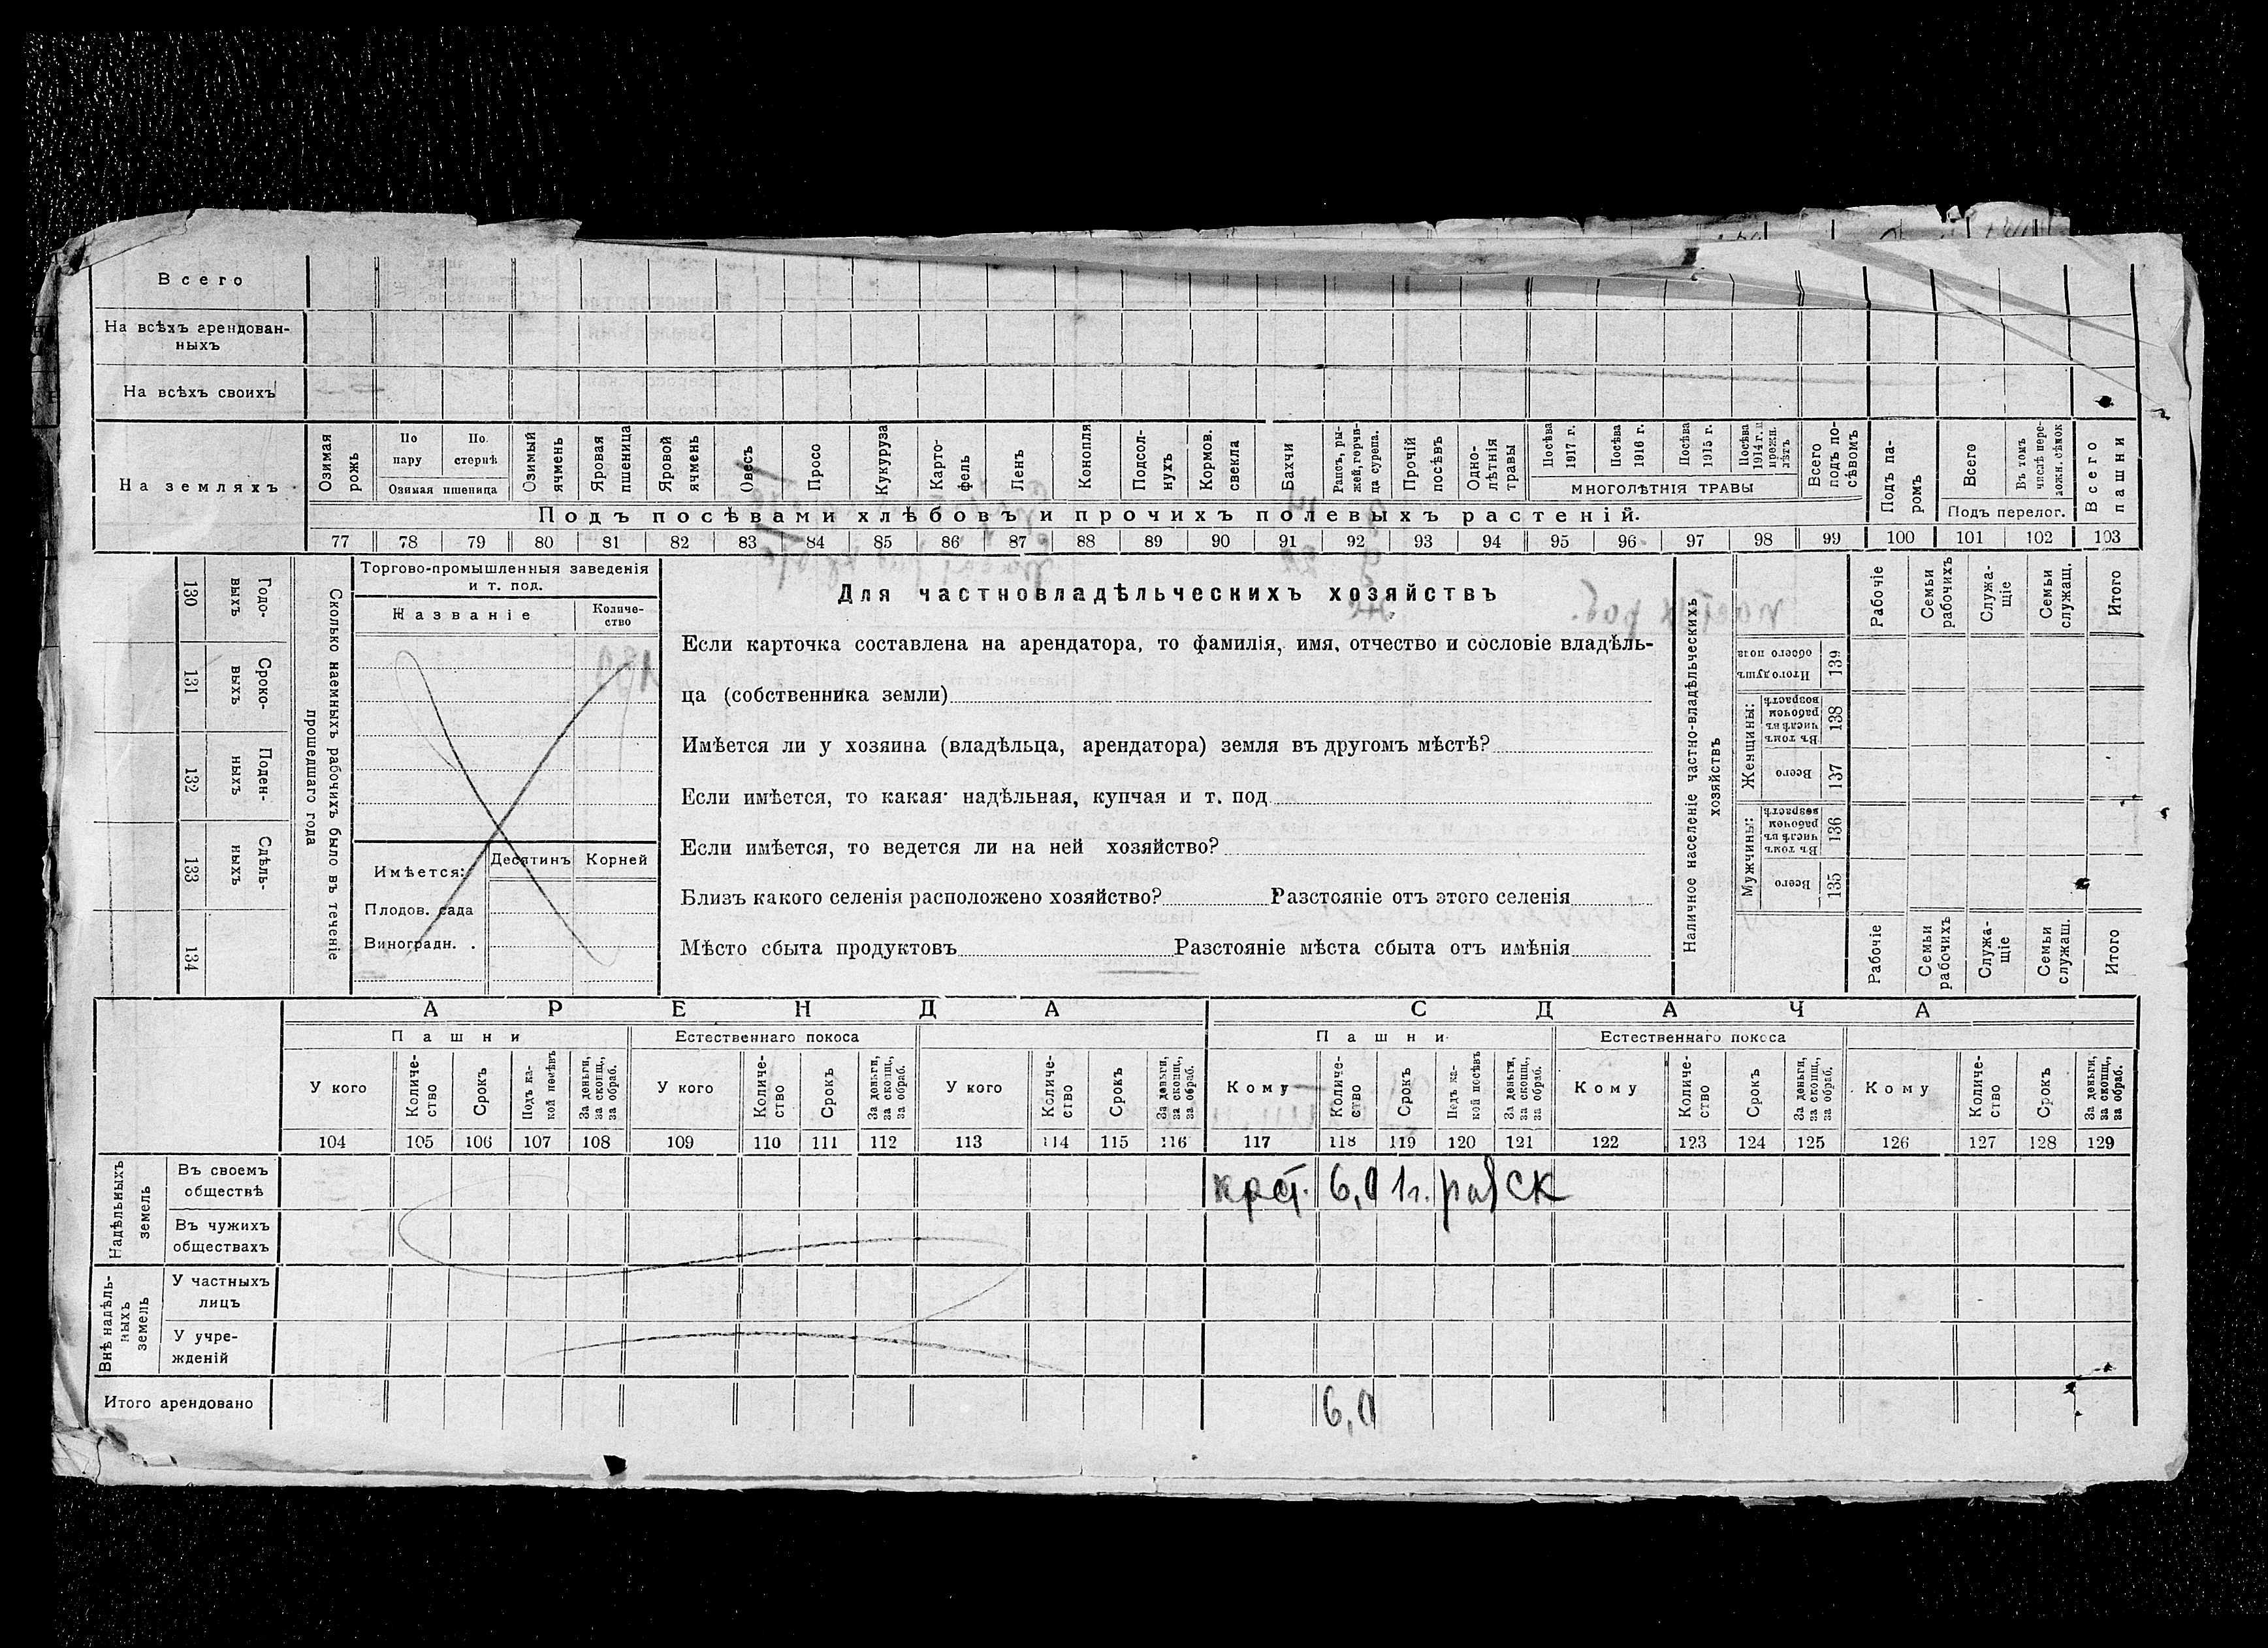 Всего
На всѣхъ арендован-
ныхъ
На всѣхъ своихъ
На земляхъ
Озимая рожь
По пару
По стернѣ
Озимая пшеница
Озимый ячмень
Яровая пшеница
Яровой ячмень
Овесъ
Просо
Кукуруза
Карто-
фель
Ленъ
Конопля
Подсол-
нухъ
Кормов. свекла
Бахчи
Рапсъ, ры-
жей, горчи-
ца сурепа.
Прочій посѣвъ
Одно-
лѣтнія травы
Посѣва 1917 г.
Посѣва 1916 г.
Посѣва 1915 г.
Посѣва 1914 г. и прежн. лѣтъ
МНОГОЛѢТНІЯ ТРАВЫ
Всего подъ по-
сѣвомъ
Подъ па-
ромъ
Всего
Въ томъ числѣ пере-
ложн. сѣнок
Подъ перелог.
Всего пашни
Подъ посѣвами хлѣбовъ и прочихъ полевыхъ растеній.
77 78 79 80 81 82 83 84 85 86 87 88 89 90 91 92 93 94 95 96 97 98 99 100 101 102 103
130 Годо-
выхъ
131 Сроко-
выхъ
132 Поден-
ныхъ
133 Сдѣль-
ныхъ
134
Сколько наемныхъ рабочихъ было въ теченіе
прошедшаго года
Торгово-промышленныя заведенія
и т. под.
Названіе
Количе-
ство
Имѣется:
Десятинъ
Корней
Плодов. сада
Виноградн. .
Для частновладѣльческихъ хозяйствъ
Если карточка составлена на арендатора, то фамилія, имя, отчество и сословіе владѣль-
ца (собственника земли)
Имѣется ли у хозяина (владѣльца, арендатора) земля въ другомъ мѣстѣ?
Если имѣется, то какая· надѣльная, купчая и т. под
Если имѣется, то ведется ли на ней хозяйство?
Близъ какого селенія расположено хозяйство? Разстояніе отъ этого селенія
Мѣсто сбыта продуктовъ Разстояніе мѣста сбыта отъ имѣнія
Наличное населеніе частно-владѣльческихъ
хозяйствъ
Рабочіе
Семьи рабочихъ
Служа-
щіе
Семьи служащ.
Итого
Итого душъ обоего пола
139
Женщины:
Въ томъ числѣ въ рабочем возрастѣ
138
Всего
137
Мужчины:
Въ томъ числѣ въ рабочем возрастѣ
136
Всего
135
Рабочіе
Семьи рабочихъ
Служа-
щіе
Семьи служащ.
Итого
АРЕНДА
СДАЧА
Пашни
Естественнаго покоса
Пашни
Естественнаго покоса
У кого
Количе-
ство
Срокъ
Подъ ка-
кой посѣвъ
За деньги, за скопщ., за обраб.
У кого
Количе-
ство
Срокъ
За деньги, за скопщ., за обраб.
У кого
Количе-
ство
Срокъ
За деньги, за скопщ., за обраб.
Кому
Количе-
ство
Срокъ
Подъ ка-
кой посѣвъ
За деньги, за скопщ., за обраб.
Кому
Количе-
ство
Срокъ
За деньги, за скопщ., за обраб.
Кому
Количе-
ство
Срокъ
За деньги, за скопщ., за обраб.
104 105 106 107 108 109 110 111 112 113 114 115 116 117 118 119 120 121 122 123 124 125 126 127 128 129
Надѣльныхъ земель
Въ своемъ
обществѣ
6,0 1г. ск
Въ чужихъ
обществахъ
Внѣ надѣль-
ныхъ земель
У частныхъ
лицъ
У учре-
жденій
Итого арендовано
6,0